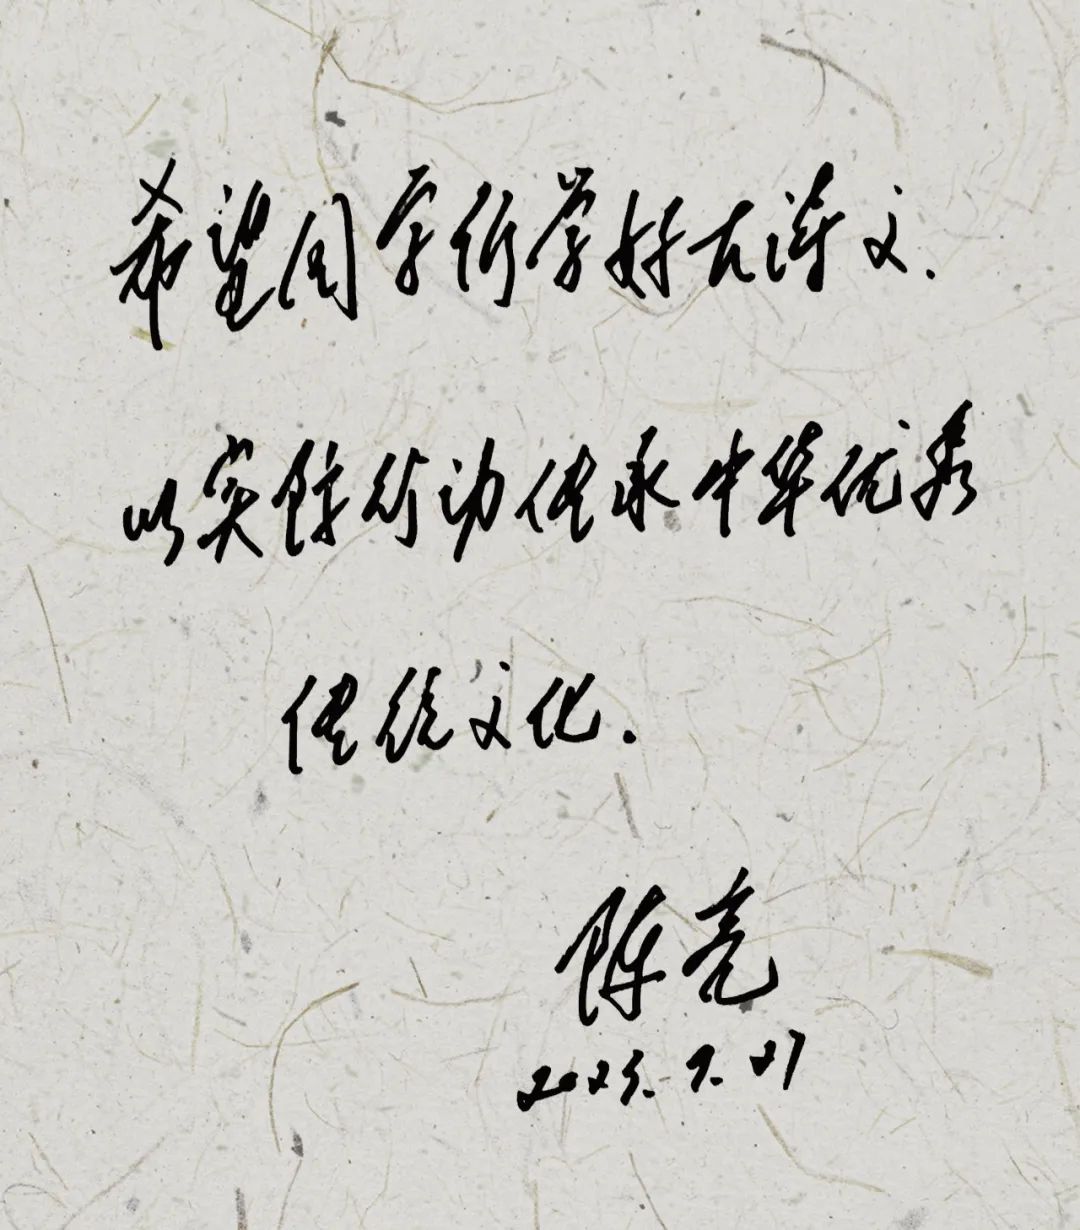 希望同学们学好古诗文.
以实际行动传承中华优秀
传统文化.
陈亮
2023.9.27